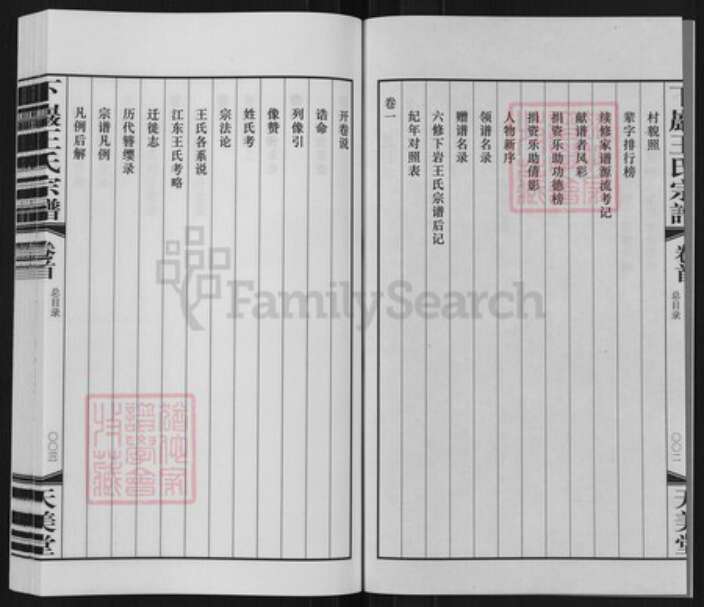 下巖王氏宗譜
卷首
总目录
〇〇二
天美堂
村貌照
辈字排行榜
续修家谱源流考记
献谱者风彩
捐资乐助功德榜
捐资乐助倩影
人物新序
领谱名录
赠谱名录
六修下岩王氏宗谱后记
纪年对照表
卷一
开卷说
诰命
列像引
像赞
姓氏考
宗法论
王氏各系说
江东王氏考略
迁徙志
历代簪缨录
宗谱凡例
凡例后解
下巖王氏宗譜
卷首
总目录
〇〇三
天美堂
FamilySearch